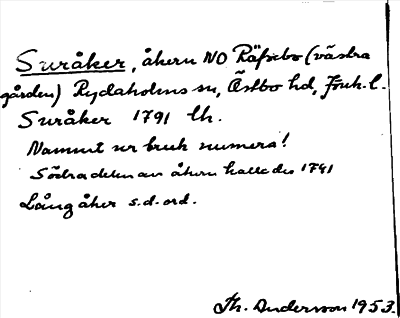 Suråker, åkern NO Räfsebo (västra
gården) Rydaholms sn, Östbo hd, Jönk. l.
Suråker 1791 lh.
Namnet ur bruk numera!
Södra delen av åkern kallades 1741
Långåker s.d. ord.
Th. Andersson 1953.